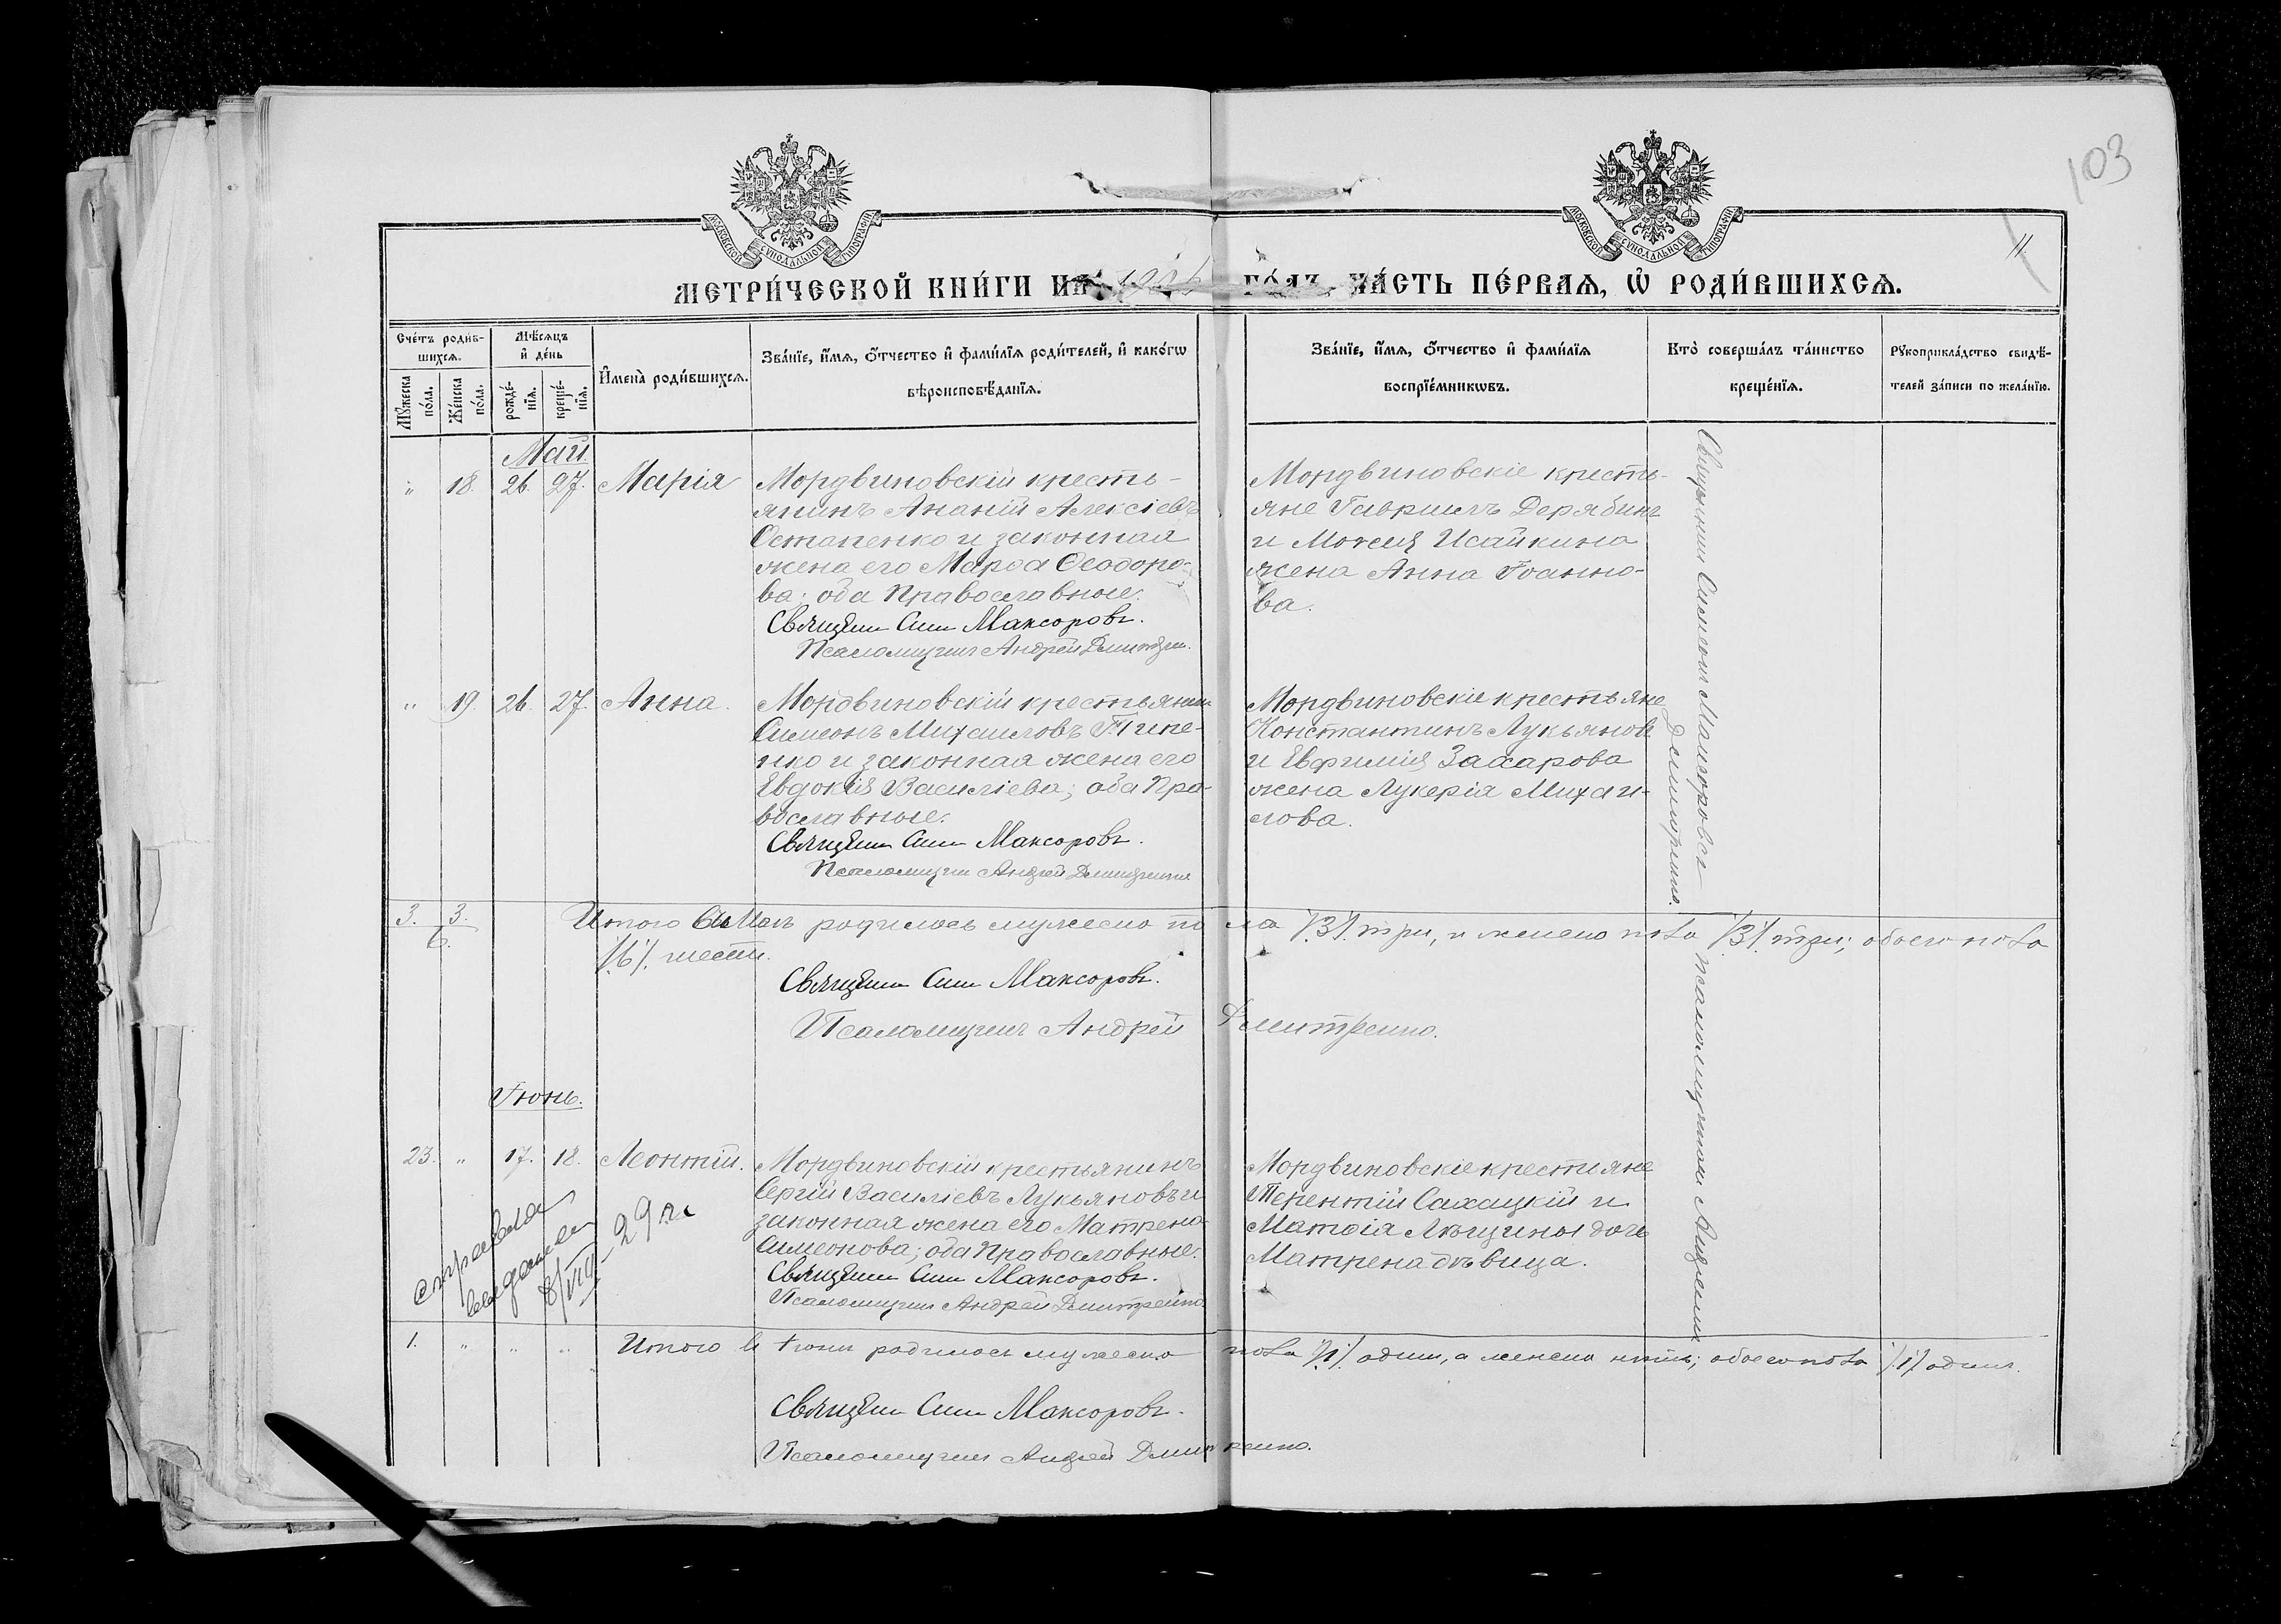 103
11.
МОСКОВСКОЙ СѴНОДАЛЬНОЙ ТИПОГРАФІИ
МОСКОВСКОЙ СѴНОДАЛЬНОЙ ТИПОГРАФІИ
МЕТРИ́ЧЕСКОЙ КНИ́ГИ НА ГО́ДЪ, ЧА́СТЬ ПЕ́РВАЯ, Ѡ҆ РОДИ́ВШИХСЯ.
Сче́тъ роди́в-
шихся.
Мꙋ́жеска по́ла.
Же́нска по́ла.
Мѣ́сяцъ
и҆ де́нь
рожде́-
нїя.
креще́-
нїя.
И҆мена̀ роди́вшихся.
Зва́нїе, и҆́мя, ѻ҆́тчество и҆ фами́лїя роди́телей, и҆ како́гѡ
вѣроисповѣ́данїя.
Зва́нїе, и҆́мя, ѻ҆́тчество и҆ фами́лїя
воспрїе́мникѡвъ.
Кто̀ соверша́лъ та́инство
креще́нїя.
Рꙋкоприкла́дство свидѣ́-
телей за́писи по жела́нїю.
Май.
" 18. 26. 27. Марія
Мордвиновскій кресть-
янинъ Ананій Алексіевъ
Остапенко и законная
жена его Марѳа Ѳеодоро-
ва; оба Православные.
Священ. Сим. Максоровъ.
Псаломщикъ Андрей Дмитрен.
Мордвиновскіе кресть-
яне Гавриилъ Дерябинъ
и Моѵсея Исайкина
жена Анна Іоанно-
ва.
Священникъ Симеонъ Максоровъ съ псаломщикомъ Андреемъ
Дмитренко.
" 19. 26. 27. Анна.
Мордвиновскій крестьянин
Симеонъ Михаиловъ Пипе-
нко и законная жена его
Евдокія Василіева; оба Пра-
вославные.
Священ. Сим. Максоровъ.
Псаломщик Андрей Дмитренко
Мордвиновскіе крестьяне
Константинъ Лукьяновъ
и Евфимія Захарова
жена Лукерія Михаи-
лова.
3. 3. Итого въ Маѣ родилось мужеско пола /3/ три, и женско пола /3/ три; обоего пола
6. /6/ шесть.
Священ. Сим. Максоровъ.
Псаломщикъ Андрей Дмитренко.
Іюнь.
23. " 17. 18. Леонтій.
Мордвиновскій крестьянинъ
Сергій Василіевъ Лукьяновъ и
законная жена его Матрена
Симеонова; оба Православные.
Священ. Сим. Максоровъ.
Псаломщик Андрей Дмитренко
Мордвиновскіе крестияне
Терентій Сахацкій и
Матѳія Лющины дочь
Матрена дѣвица.
справка
выдана
8/VIII-29 г.
1. " " " Итого въ Іюнѣ родилось мужеско пола /1/ один, а женско нѣтъ; обоего пола /1/ один.
Священ. Сим. Максоровъ.
Псаломщик Андрей Дмитренко.